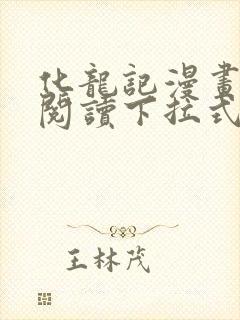 化龍記漫畫
閱讀下拉式
王林茂